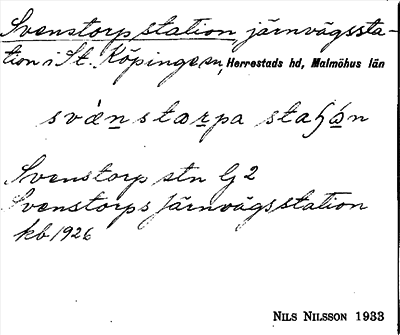 Svenstorp station, järnvägssta-
tion i St. Köpinge sn, Herrestads hd, Malmöhus län
svæn̲star̲pa staɧá̲n
Svenstorp stn Gj 2
Svenstorps Järnvägsstation
kb 1926
NILS NILSSON 1933